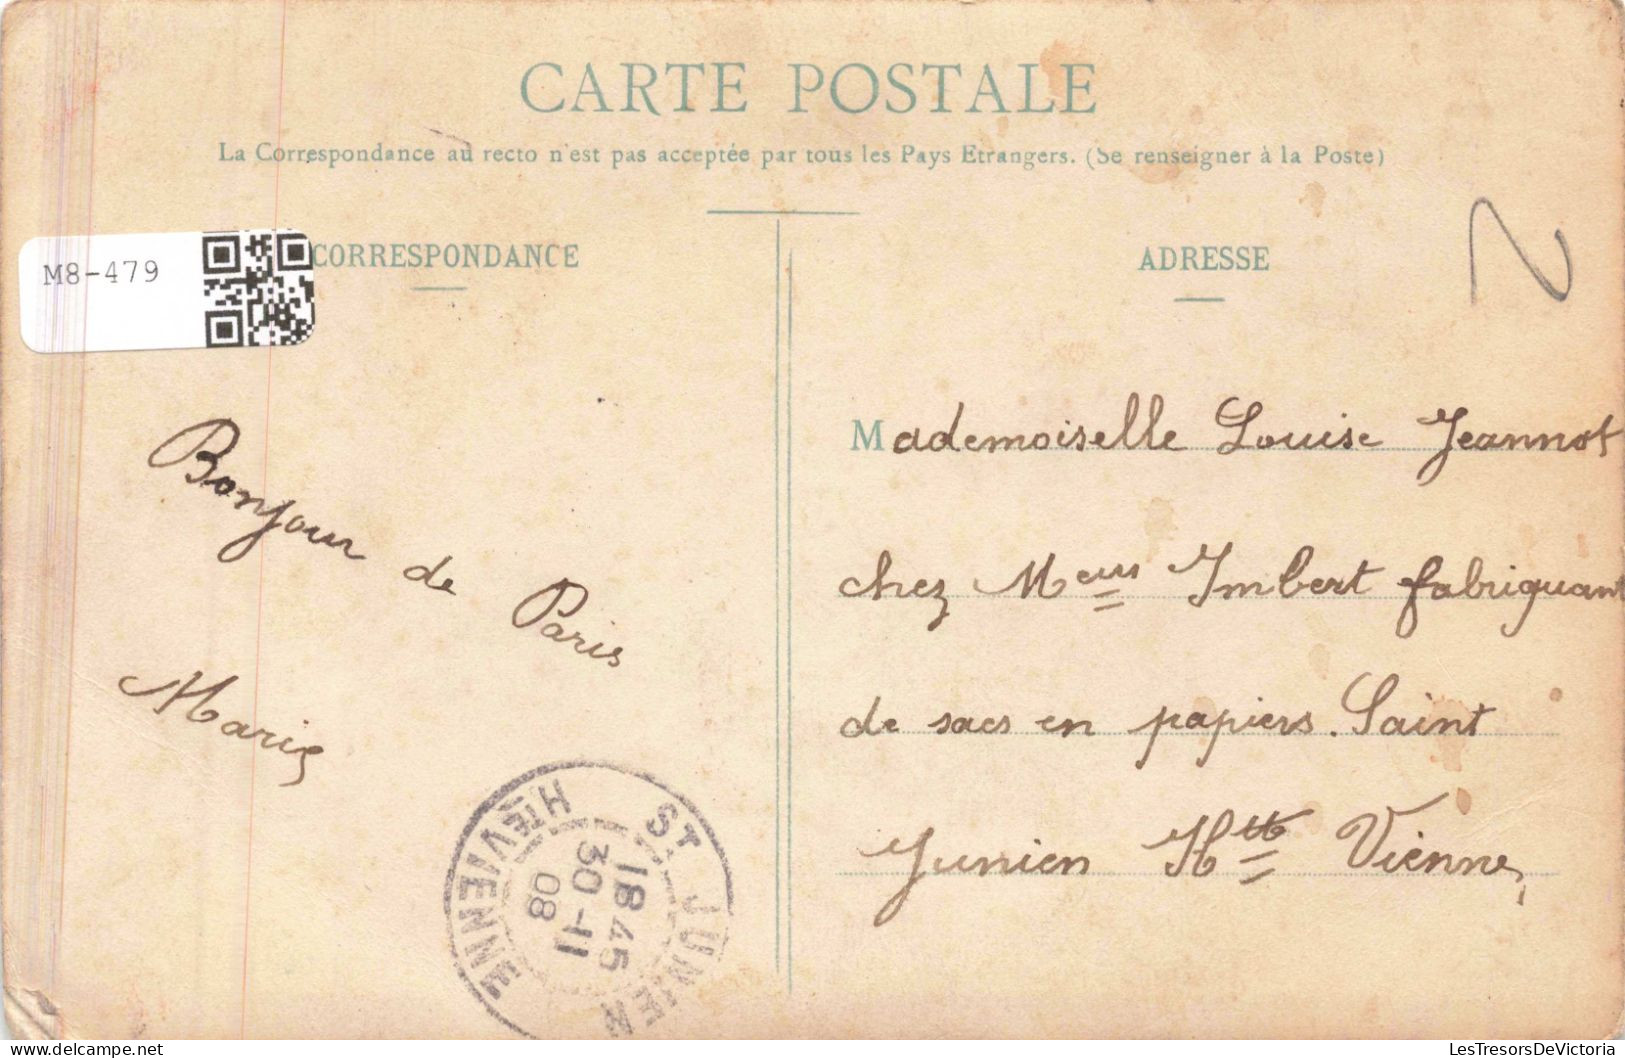 CARTE POSTALE
La Correspondance au recto n'est pas acceptée par tous les Pays Etrangers. (Se renseigner à la Poste)
M8-479
CORRESPONDANCE
Bonjour de Paris
Marie
ST JUNIEN
HTE VIENNE
18 45
30 - 11
08
ADRESSE
Mademoiselle Louise Jeannot
chez Meurs Imbert fabriquant
de sacs en papiers. Saint
Junien Htte Vienne,
LesTresorsDeVictoria.com